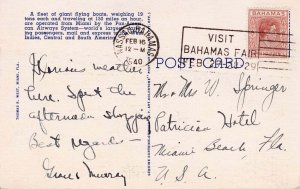 A fleet of giant flying boats, weighing 12
tons each and traveling at 130 miles an hour,
are operated from Miami by the Pan Amer-
mail and express to
Central and South America
THOMAS E. WEST, MIAMI, FLA.
NASSAU BAHAMAS
FEB 16
12-M
40
BAHAMAS
VISIT
BAHAMAS FAIR
29
POST CARD
Glorious weather
here. Spent the
afternoon shopping
Best Regards
Grace Murray
Mr + Mrs W. Springer
Patrician Hotel
Miami Beach, Fla.
U.S.A.